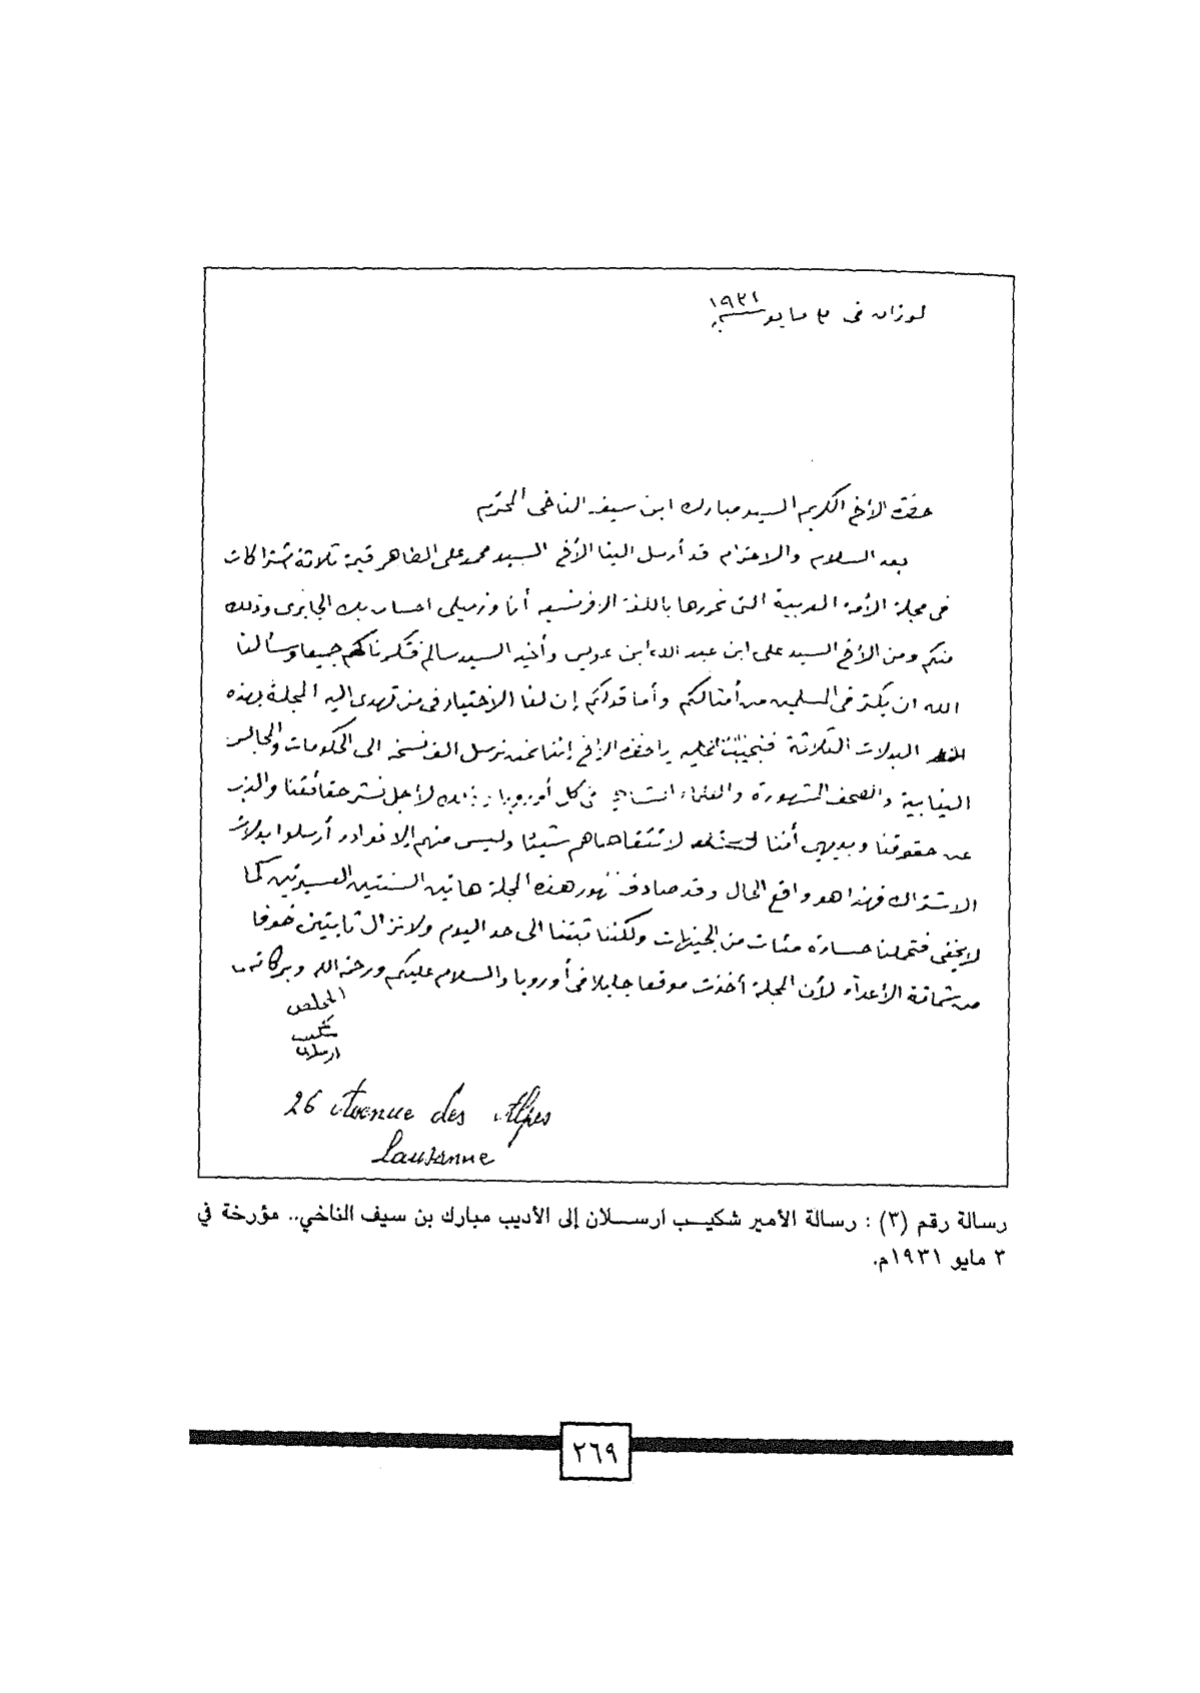 لوزان فى ٣ مايو سنة ١٩٣١
حضرة الأخ الكريم السيد مبارك ابن سيف الناخى المحترم
بعد السلام والاحترام قد أرسل الينا الأخ السيد محمد على الطاهر قيمة ثلاثة اشتراكات
فى مجلة الأمة العربية التى نحررها باللغة الافرنسية أنا وزميلى احسان بك الجابرى وذلك
منكم ومن الأخ السيد على ابن عبد الله ابن عويس وأخيه السيد سالم فشكرناكم جميعا وسألنا
الله ان يكثر فى المسلمين من أمثالكم وأما قولكم إن لنا الاختيار فى من تهدى اليه المجلة بهذه
البدلات الثلاثة فنجيبكم عليه يا حضرة الأخ إننا نحن نرسل الف نسخة الى الحكومات والمجالس
النيابية والصحف المشهورة والعلماء فى كل أوروبا وذلك لأجل نشر حقائقنا والذب
عن حقوقنا وبديهى أننا لا نتقاضاهم شيئا وليس منهم إلا نوادر أرسلوا بدلات
الاشتراك فهذا هو واقع الحال وقد صادف ظهور هذه المجلة هاتين السنتين العسيرتين كما
لا يخفى فتحملنا خسارة مئات من الجنيهات ولكننا ثبتنا الى حد اليوم ولا نزال ثابتين خوفا
من شماتة الأعداء لأن المجلة أخذت موقعا جليلا فى أوروبا والسلام عليكم ورحمة الله وبركاته
المخلص
شكيب
ارسلان
26 Avenue des Alpes
Lausanne
رسالة رقم (٣) : رسالة الأمير شكيب ارسلان إلى الأديب مبارك بن سيف الناخي.. مؤرخة في
٣ مايو ١٩٣١م.
٢٦٩